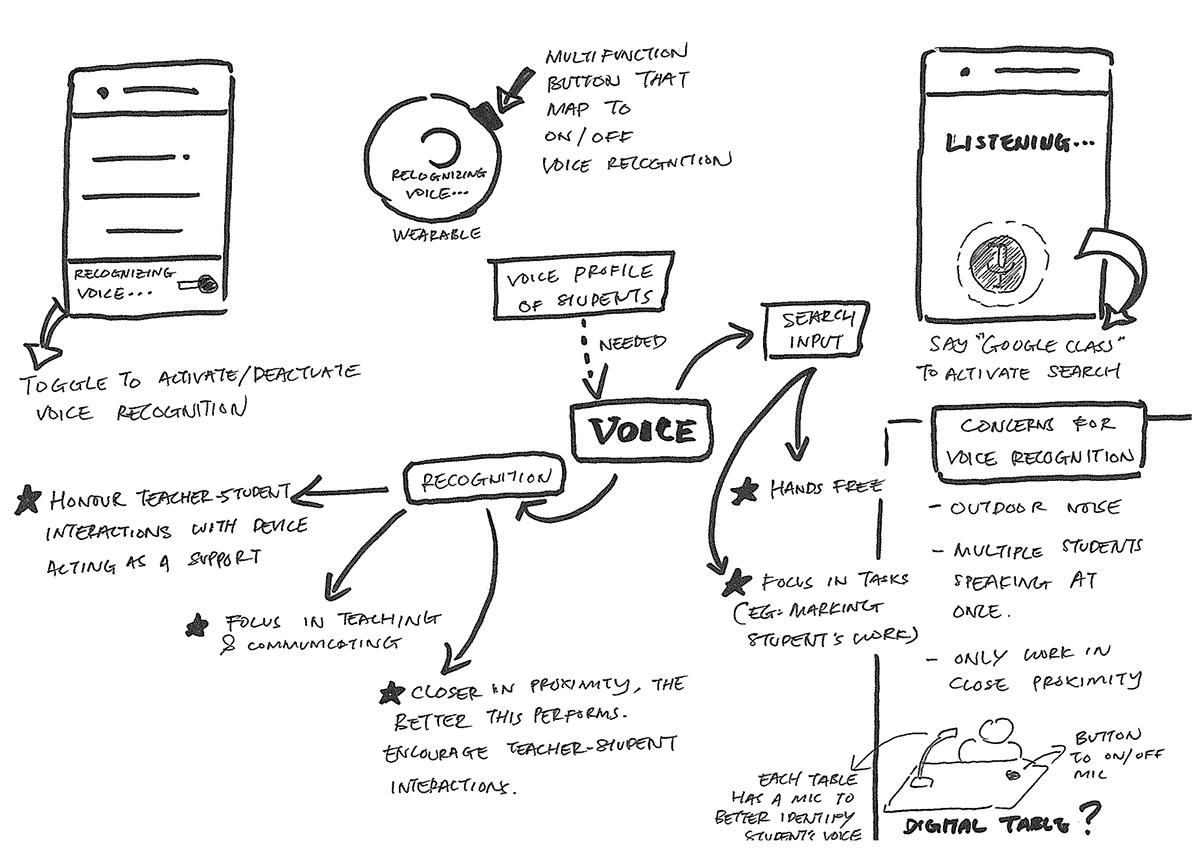 RECOGNIZING
VOICE...
TOGGLE TO ACTIVATE/DEACTIVATE
VOICE RECOGNITION
RECOGNIZING
VOICE...
WEARABLE
MULTIFUNCTION
BUTTON THAT
MAP TO
ON/OFF
VOICE RECOGNITION
LISTENING...
SAY "GOOGLE CLASS"
TO ACTIVATE SEARCH
VOICE PROFILE
OF STUDENTS
NEEDED
SEARCH
INPUT
VOICE
RECOGNITION
HONOUR TEACHER-STUDENT
INTERACTIONS WITH DEVICE
ACTING AS A SUPPORT
FOCUS IN TEACHING
& COMMUNICATING
CLOSER IN PROXIMITY, THE
BETTER THIS PERFORMS.
ENCOURAGE TEACHER-STUDENT
INTERACTIONS.
HANDS FREE
FOCUS IN TASKS
(EG: MARKING
STUDENT'S WORK)
CONCERNS FOR
VOICE RECOGNITION
- OUTDOOR NOISE
- MULTIPLE STUDENTS
SPEAKING AT
ONCE.
- ONLY WORK IN
CLOSE PROXIMITY
BUTTON
TO ON/OFF
MIC
EACH TABLE
HAS A MIC TO
BETTER IDENTIFY
STUDENT'S VOICE
DIGITAL TABLE?